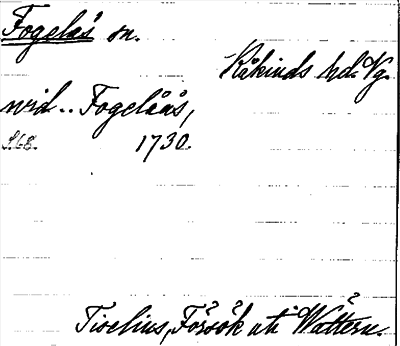 Fogelås sn.
Kåkinds hd. Vg.
wid .. Fogelåås,
S. 68. 1730.
Tiselius, Försök uti Wättern.